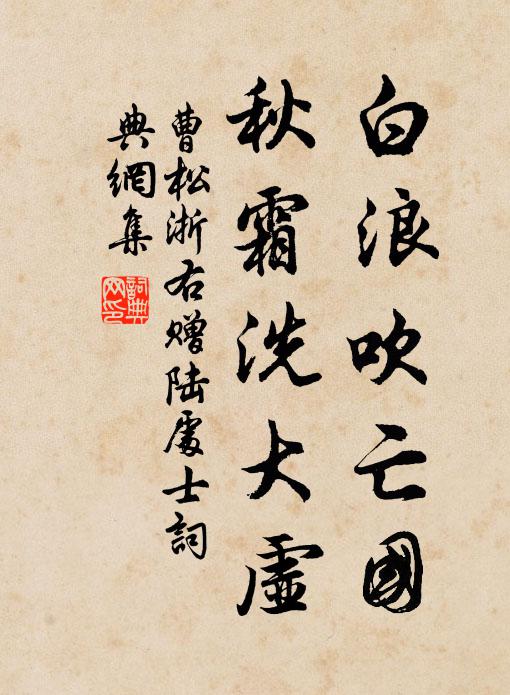 白浪吹亡國
秋霜洗大虛
曹松浙右贈陆處士詞
典網集
詞典
网印